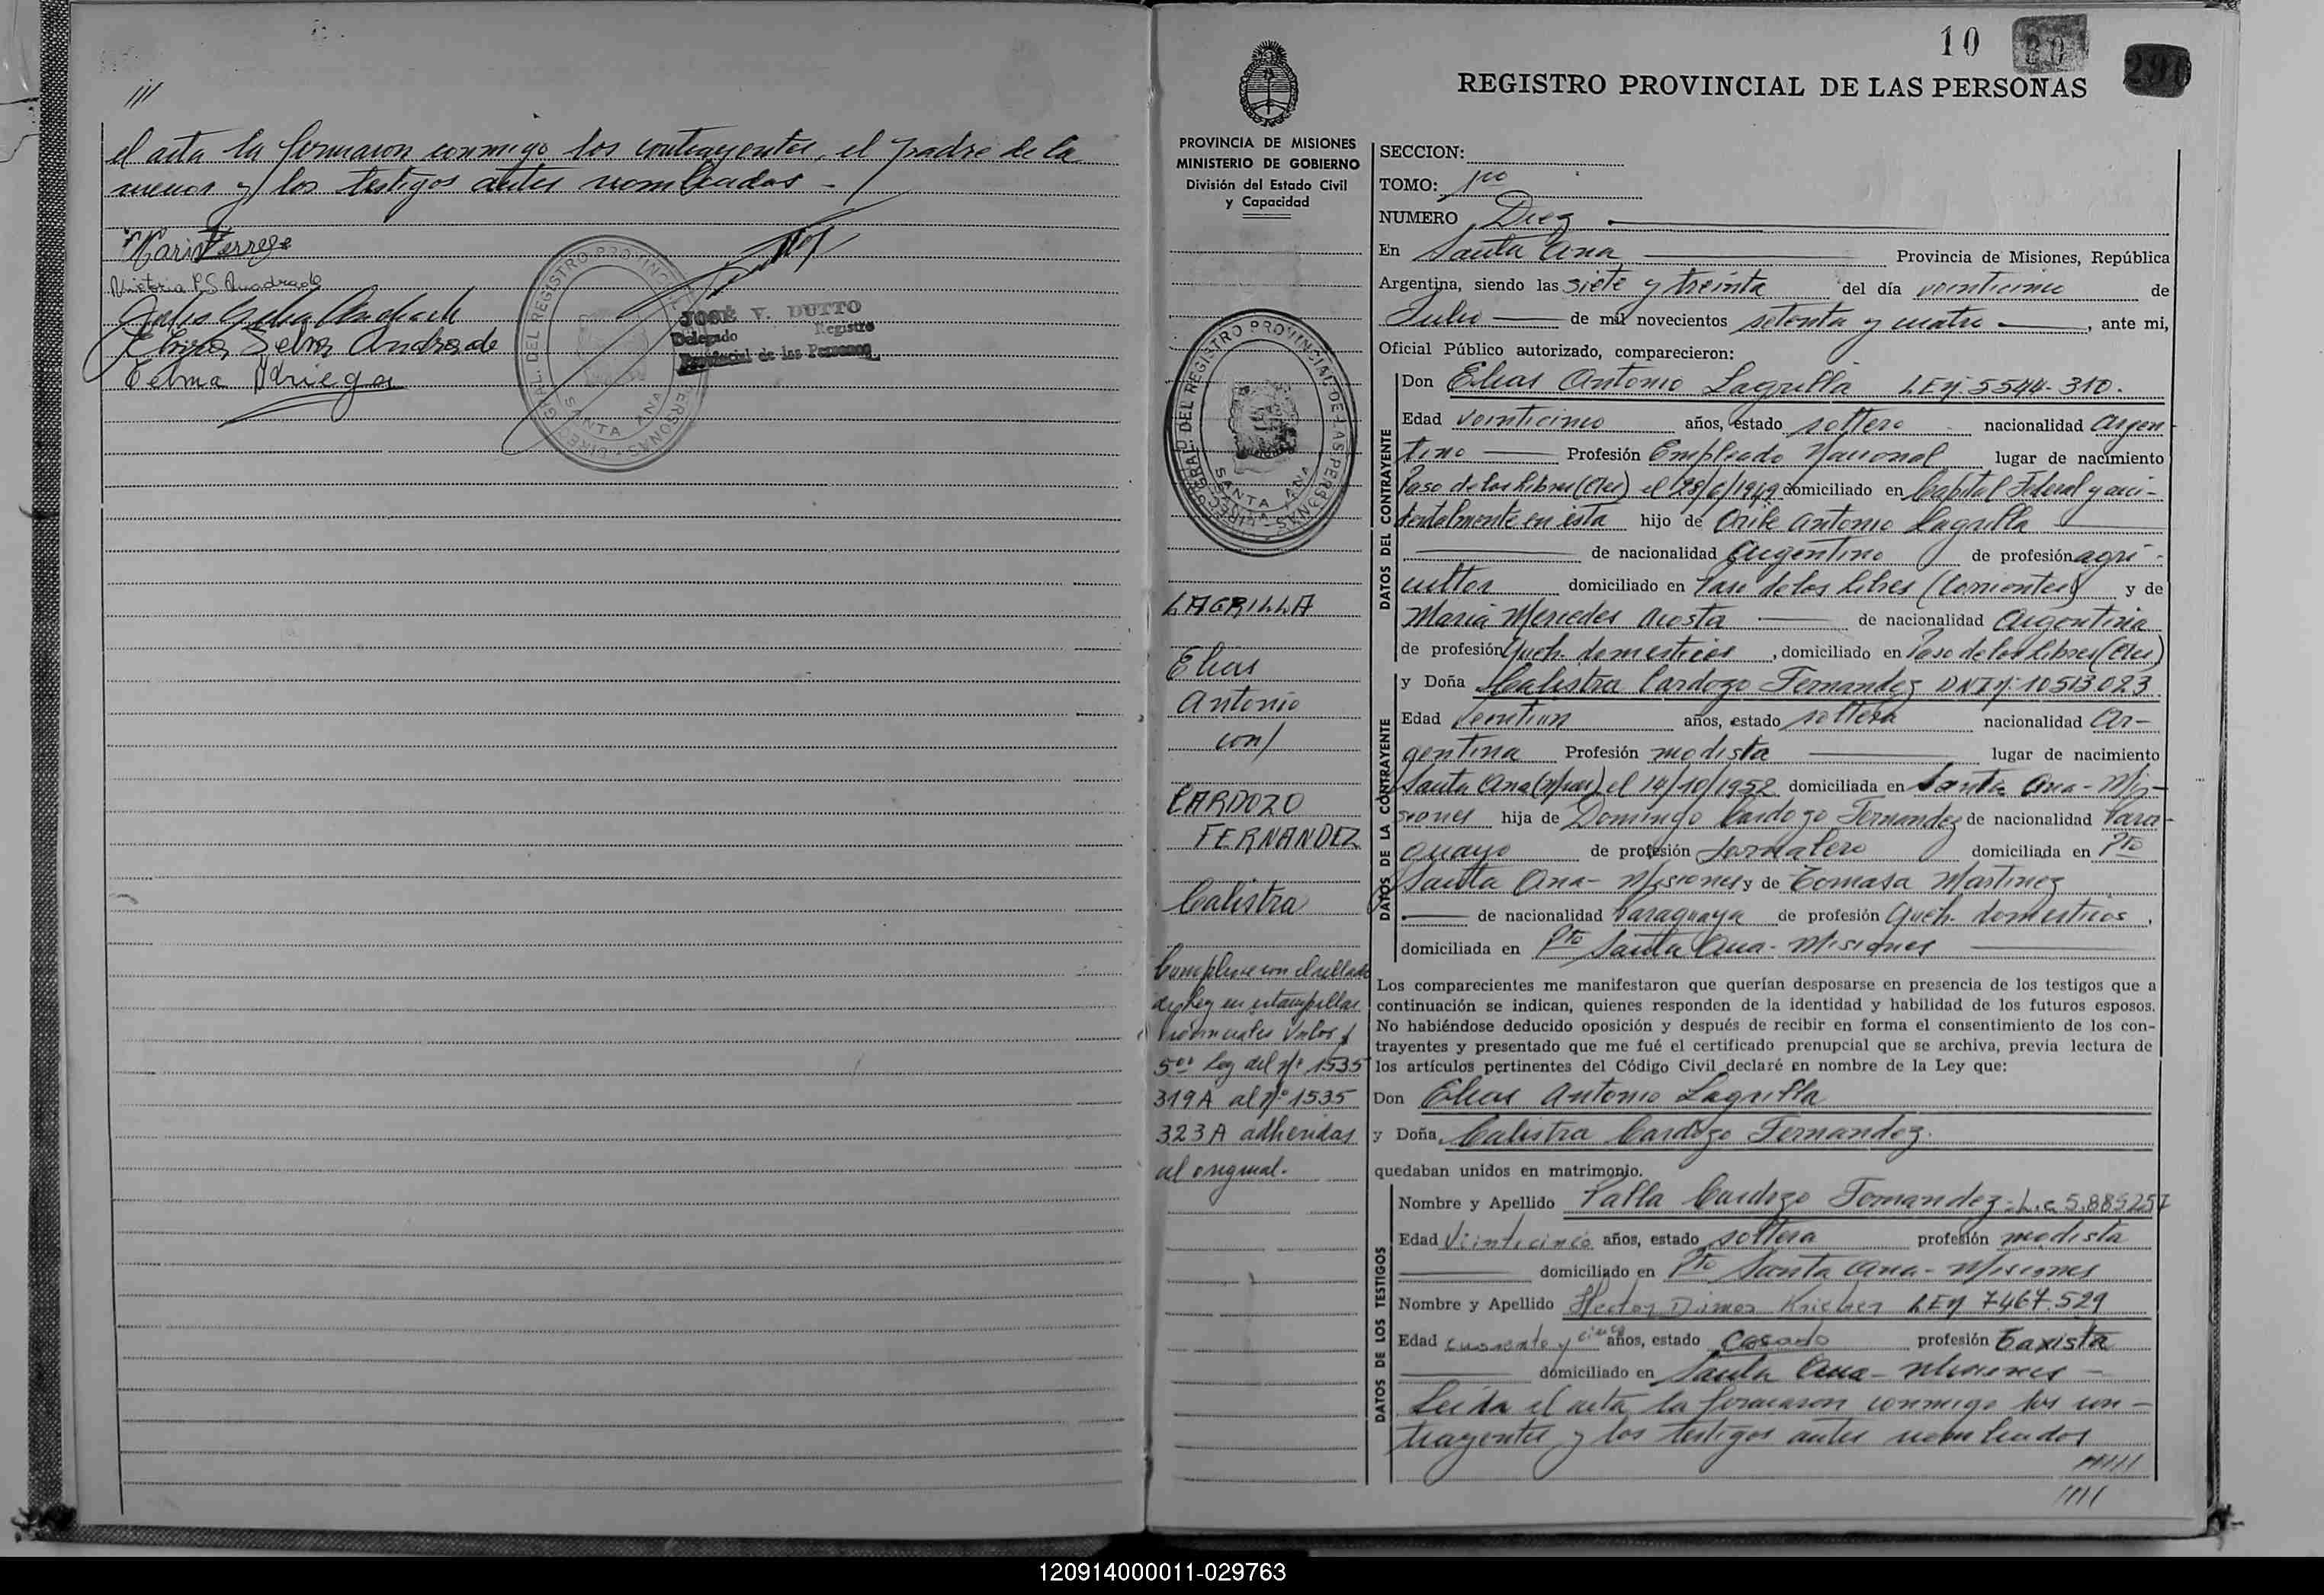 ///
el acta la firmaron conmigo los contrayentes, el padre de la
menor y los testigos antes nombrados -
Victoria P. S. Quadrado
Elvira Selva Andrade
Telma
DIREC. GRAL. DEL REGISTRO PROVINCIAL DE LAS PERSONAS
SANTA ANA
JOSÉ V. DUTTO
Delegado Registro
Provincial de las Personas
10 20 290
REGISTRO PROVINCIAL DE LAS PERSONAS
PROVINCIA DE MISIONES
MINISTERIO DE GOBIERNO
División del Estado Civil
y Capacidad
DIREC. GRAL. DEL REGISTRO PROVINCIAL DE LAS PERSONAS
SANTA ANA
LAGRILLA
Elias
Antonio
con/
CARDOZO
FERNANDEZ
Calistra
Cumplese con el sellado
de Ley en estampillas
Provinciales Valor $
5oo Ley del Nº 1535
319A al Nº 1535
323A adheridas
al original.
SECCION:
TOMO: 1ro
NUMERO Diez
En Santa Ana Provincia de Misiones, República
Argentina, siendo las siete y treinta del día veinticinco de
Julio de mil novecientos setenta y cuatro, ante mi,
Oficial Público autorizado, comparecieron:
DATOS DEL CONTRAYENTE
Don Elias Antonio Lagrilla L.E.Nº 5544.310.
Edad veinticinco años, estado soltero nacionalidad Argen-
tino Profesión Empleado Nacional lugar de nacimiento
Paso de los Libres (Ctes) el 28/6/1949 domiciliado en Capital Federal y acci-
dentalmente en ésta hijo de Orife Antonio Lagrilla
de nacionalidad Argentino de profesión agri-
cultor domiciliado en Paso de los Libres (Corrientes) y de
Maria Mercedes Acosta de nacionalidad Argentina
de profesión Queh. domesticos, domiciliado en Paso de los Libres (Ctes)
DATOS DE LA CONTRAYENTE
y Doña Calistra Cardozo Fernandez DNI Nº 10513.023
Edad veintiun años, estado soltera nacionalidad Ar-
gentina Profesión modista lugar de nacimiento
Santa Ana (Mnes) el 14/10/1952 domiciliada en Santa Ana - Mi-
siones hija de Domingo Cardozo Fernandez de nacionalidad Para-
guayo de profesión Jornalero domiciliada en Pto
Santa Ana - Misiones y de Tomasa Martinez
de nacionalidad Paraguaya de profesión Queh. domesticos,
domiciliada en Pto Santa Ana - Misiones
Los comparecientes me manifestaron que querían desposarse en presencia de los testigos que a
continuación se indican, quienes responden de la identidad y habilidad de los futuros esposos.
No habiéndose deducido oposición y después de recibir en forma el consentimiento de los con-
trayentes y presentado que me fué el certificado prenupcial que se archiva, previa lectura de
los artículos pertinentes del Código Civil declaré en nombre de la Ley que:
Don Elias Antonio Lagrilla
y Doña Calistra Cardozo Fernandez.
quedaban unidos en matrimonio.
DATOS DE LOS TESTIGOS
Nombre y Apellido Pabla Cardozo Fernandez - L.C 5.885257
Edad Veinticinco años, estado soltera profesión modista
domiciliado en Pto Santa Ana - Misiones
Nombre y Apellido Hector LEN 7467.529
Edad cuarenta y cinco años, estado Casado profesión Taxista
domiciliado en Santa Ana - Misiones -
Leida el acta la firmaron conmigo los con-
trayentes y los testigos antes nombrados
/////
////
120914000011-029763